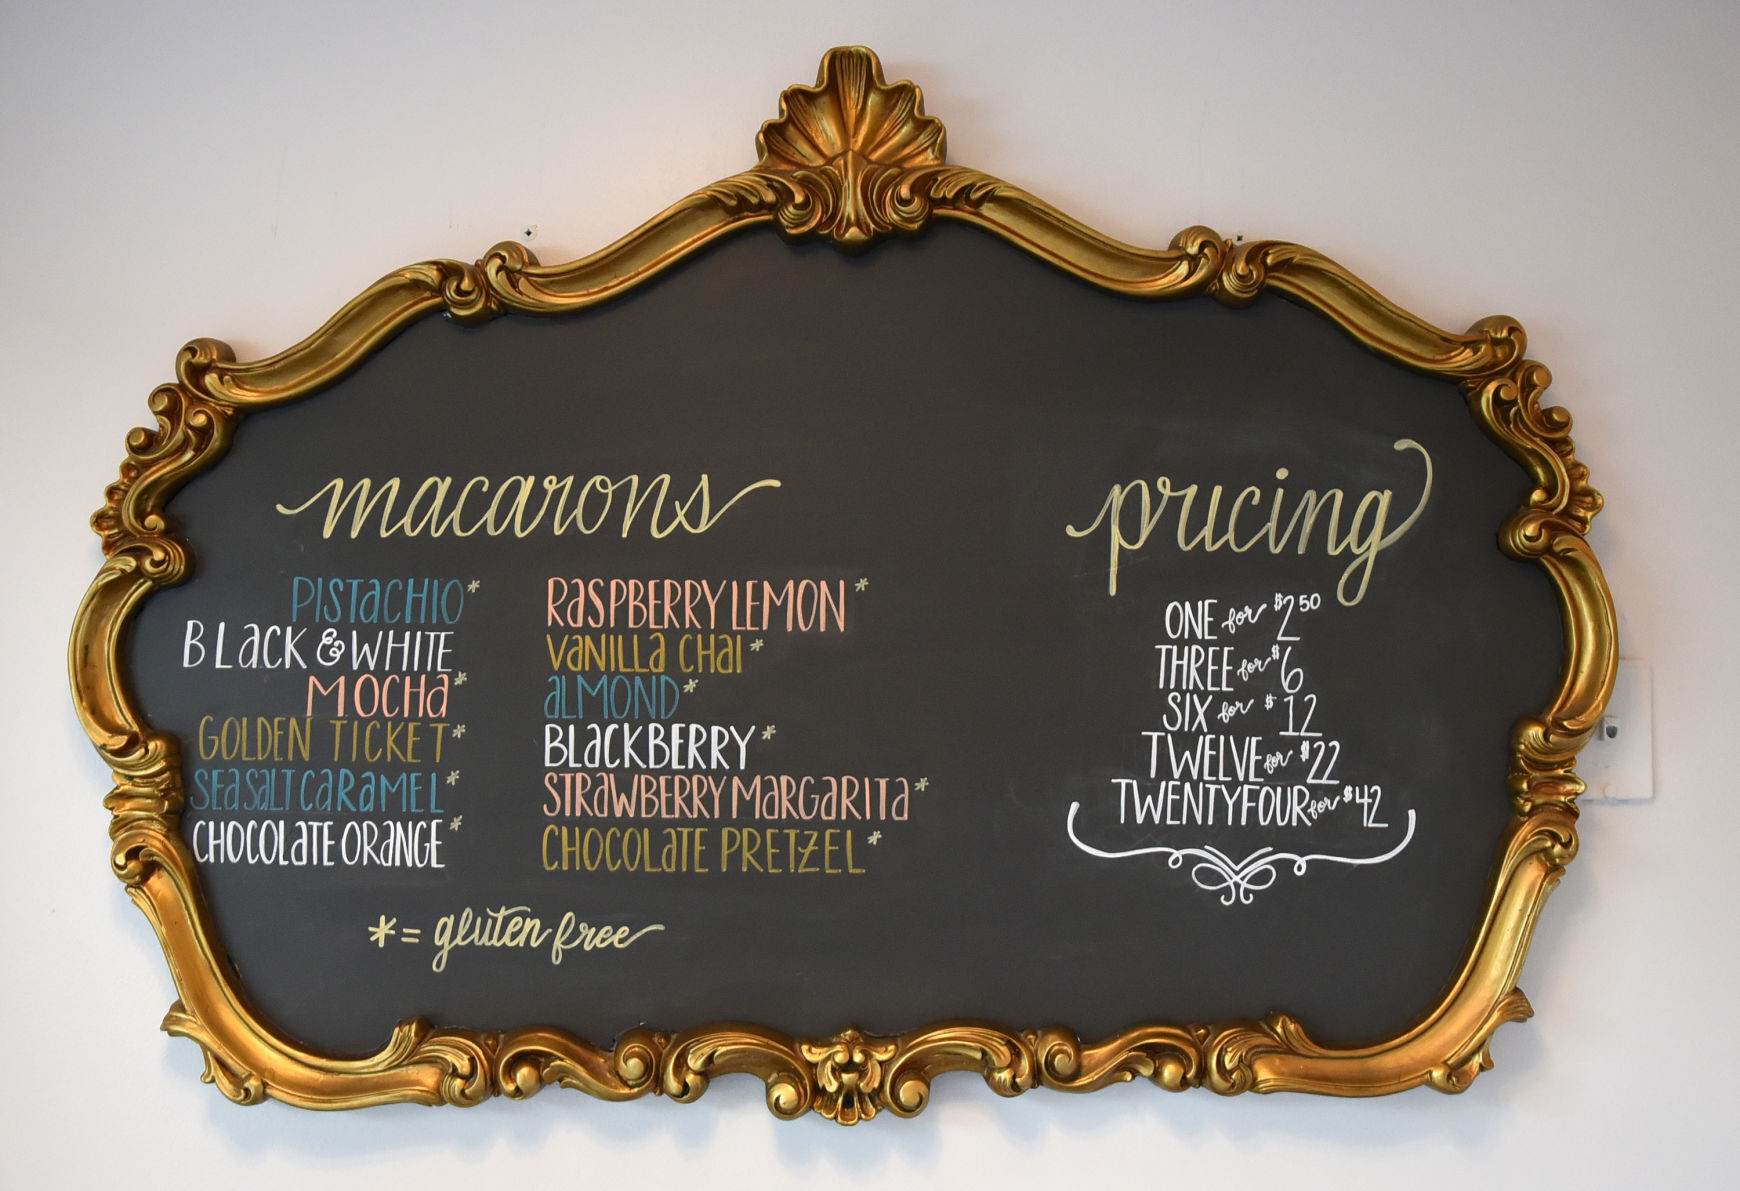 macarons
PISTACHIO*
BLACK & WHITE
MOCHA*
GOLDEN TICKET*
SEA SALT CARAMEL*
CHOCOLATE ORANGE*
RASPBERRY LEMON*
VANILLA CHAI*
ALMOND*
BLACKBERRY*
STRAWBERRY MARGARITA*
CHOCOLATE PRETZEL*
*= gluten free
pricing
ONE for $2.50
THREE for $6
SIX for $12
TWELVE for $22
TWENTYFOUR for $42